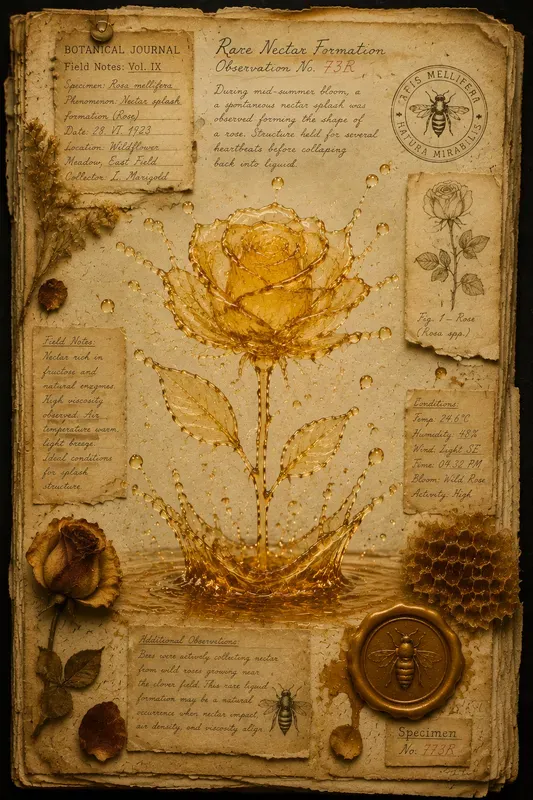 BOTANICAL JOURNAL
Field Notes: Vol. IX
Specimen: Rosa mellifera
Phenomenon Nectar splash
formation (Rose)
Date 28. VI. 1923
Location: Wildflower
Meadow, East Field
Collector L. Marigold
Rare Nectar Formation
Observation No. 73R
During mid-summer bloom, a
a spontaneous nectar splash was
observed forming the shape of
a rose. Structure held for several
heartbeats before collapsing
back into liquid.
APIS MELLIFERA
NATURA MIRABILIS
Fig. 1 – Rose
(Rosa spp.)
Field Notes:
Nectar rich in
fructose and
natural enzymes.
High viscosity
observed. Air
temperature warm,
light breeze.
Ideal conditions
for splash
structure.
Conditions:
Temp: 24.6°C
Humidity: 48%
Wind: Light SE
Time: 04:32 PM
Bloom: Wild Rose
Activity: High
Additional Observations:
Bees were actively collecting nectar
from wild roses growing near
the clover field. This rare liquid
formation may be a natural
occurrence when nectar impact,
air density, and viscosity align.
Specimen
No. 773R